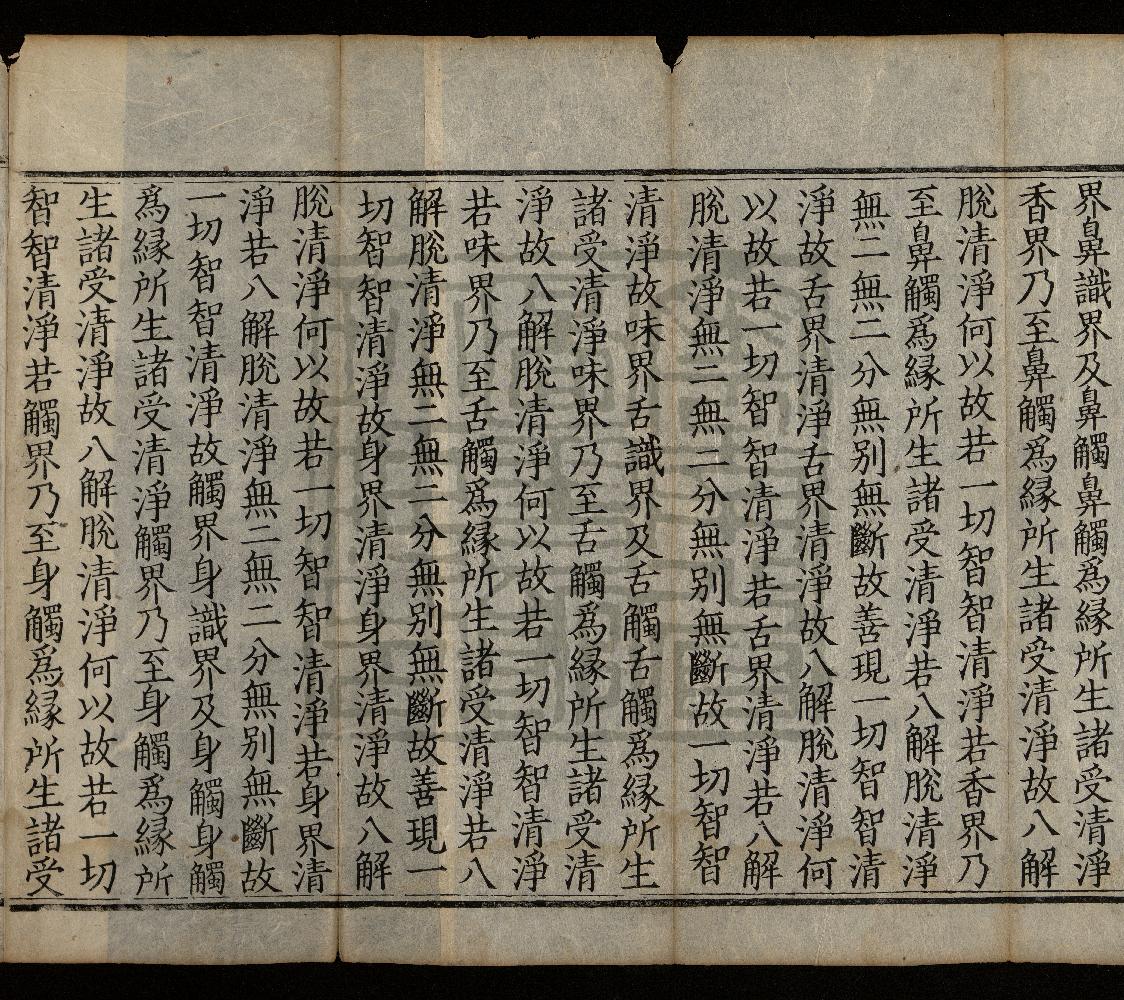 界鼻識界及鼻觸鼻觸爲緣所生諸受清淨
香界乃至鼻觸爲緣所生諸受清淨故八解
脫清淨何以故若一切智智清淨若香界乃
至鼻觸爲緣所生諸受清淨若八解脫清淨
無二無二分無別無斷故善現一切智智清
淨故舌界清淨舌界清淨故八解脫清淨何
以故若一切智智清淨若舌界清淨若八解
脫清淨無二無二分無別無斷故一切智智
清淨故味界舌識界及舌觸舌觸爲緣所生
諸受清淨味界乃至舌觸爲緣所生諸受清
淨故八解脫清淨何以故若一切智智清淨
若味界乃至舌觸爲緣所生諸受清淨若八
解脫清淨無二無二分無別無斷故善現一
切智智清淨故身界清淨身界清淨故八解
脫清淨何以故若一切智智清淨若身界清
淨若八解脫清淨無二無二分無別無斷故
一切智智清淨故觸界身識界及身觸身觸
爲緣所生諸受清淨觸界乃至身觸爲緣所
生諸受清淨故八解脫清淨何以故若一切
智智清淨若觸界乃至身觸爲緣所生諸受